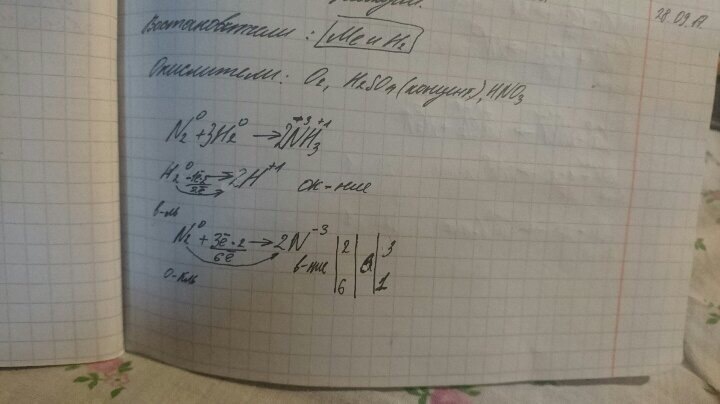 28.09.17.
Восстановители: Me и H₂
Окислители: O₂, H₂SO₄ (концент), HNO₃
N₂⁰ + 3H₂⁰ → 2N⁻³H₃⁺¹
H₂⁰ -1ē·2 → 2H⁺¹ ок-ние
2ē
в-ль
N₂⁰ + 3ē·2 → 2N⁻³ в-ние | 2 | 6 | 3
6ē | 6 | | 1
о-ль